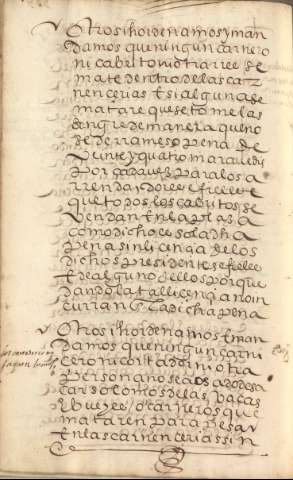 Otrosi hordenamos y man
damos que ningun carnero
ni cabrito ni otra res se
mate dentro de las car
nencerias E si alguna se
matare que se tome la s
sangre de manera que no
se derrame so pena de
beinte y quatro maravedis
por cada vez para los a
rrendadores e fieles E
que todos los cabritos se
vendan En la plaça
como dicho es so la dha
pena sin liçençia de los
dichos presidente e fieles
E de alguno dellos porque
dando la tal liçençia no in
curran En la dicha pena
Otrosi hordenamos E man
damos que ningun carni
cero ni cortador ni otra
persona no sea osado de sa
car solomos de las bacas
E bueyes o carneros que
mataren para pesar
En las carnencerias sin